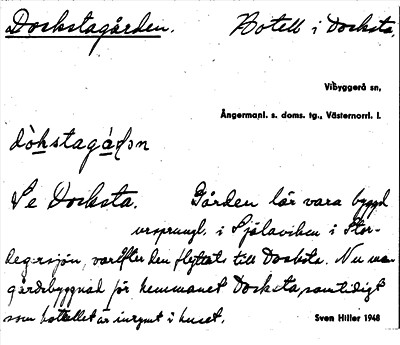 Dockstagården. Hotell i Docksta.
Vibyggerå sn,
Ångermanl. s. doms. tg., Västernorrl. l.
Se Docksta. Gården lär vara byggd
ursprungl. i Själaviken i Stor-
degersjön, varifter den flyttats till Docksta. Nu
gårdsbyggnad för hemmanet Docksta, samtidigt
som hotellet är inrymt i huset.
Sven Hiller 1948